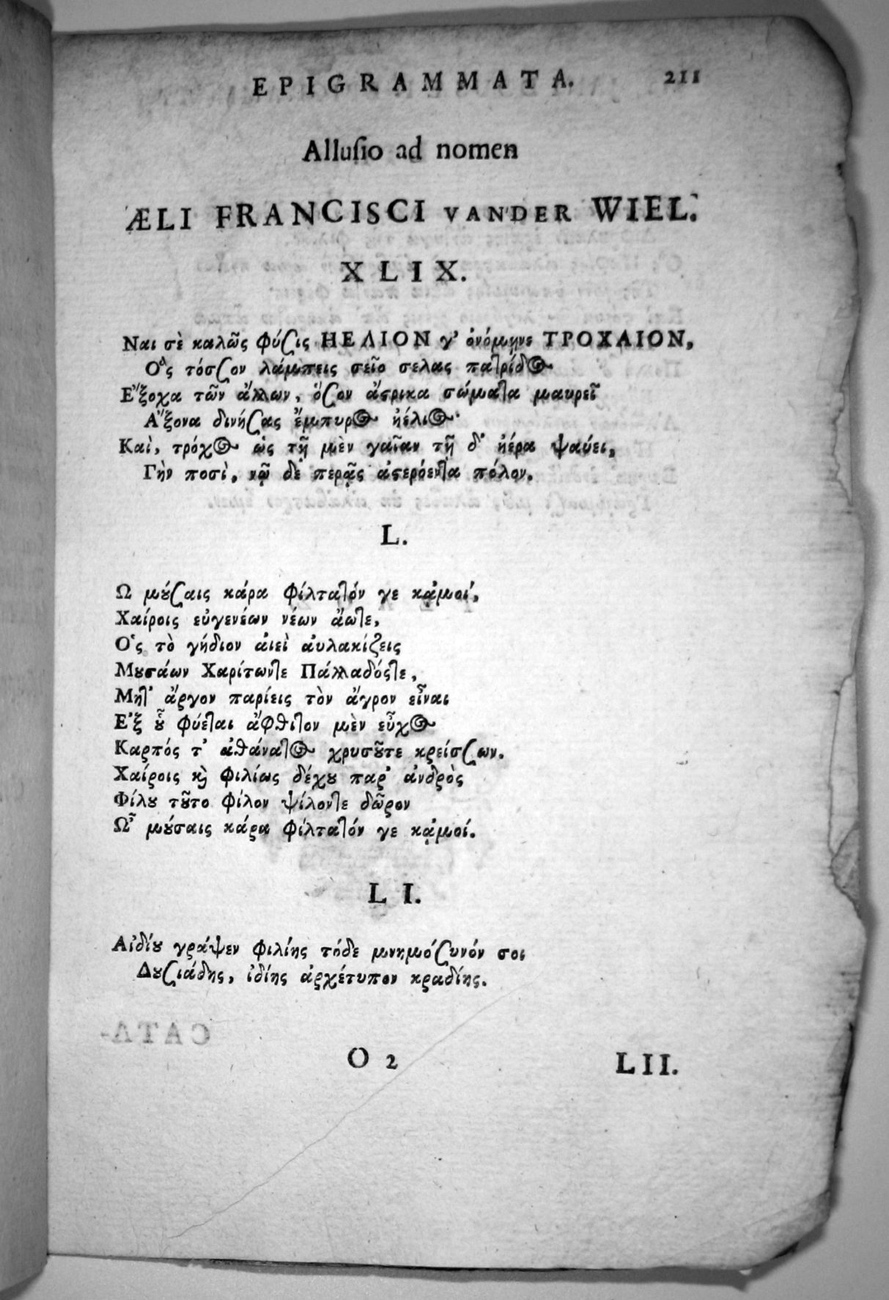 EPIGRAMMATA. 211
Alluſio ad nomen
ÆLI FRANCISCI VANDER WIEL.
XLIX.
Ναι σὲ καλῶς φύσις ΗΕΛΙΟΝ γ' ὀνόμηνε ΤΡΟΧΑΙΟΝ,
Ὃς τόσσον λάμπεις σεῖο σελας πατρίδος
Ἔξοχα τῶν ἄλλων, ὅσον ἄστρικα σώματα μαυρεῖ
Ἄξονα δινήσας ἔμπυρος ἠέλιος·
Καὶ, τρόχος ὡς τῇ μὲν γαῖαν τῇ δ' ἠέρα ψαύει,
Γὴν ποσὶ, νῷ δὲ περᾷς ἀστερόεντα πόλον.
L.
Ω μούσαις κάρα φίλτατόν γε κᾀμοί,
Χαίροις εὐγενέων νέων ἄωτε,
Ὃς τὸ γήδιον ἀιεὶ ἀυλακίζεις
Μουσάων Χαρίτωντε Παλλαδόςτε,
Μητ' ἄργον παρίεις τὸν ἄγρον εἶναι
Ἐξ οὗ φύεται ἄφθιτον μὲν εὖχος
Καρπός τ' ἀθάνατος χρυσοῦτε κρείσσων.
Χαίροις καὶ φιλίως δέχου παρ' ἀνδρὸς
Φίλου τοῦτο φίλον ψίλοντε δῶρον
Ὦ μούσαις κάρα φίλτατόν γε κᾀμοί.
LI.
Αἰδίου γράψεν φιλίης τόδε μνημόσυνόν σοι
Δουσιάδης, ἰδίης ἀρχέτυπον κραδίης.
O 2 LII.